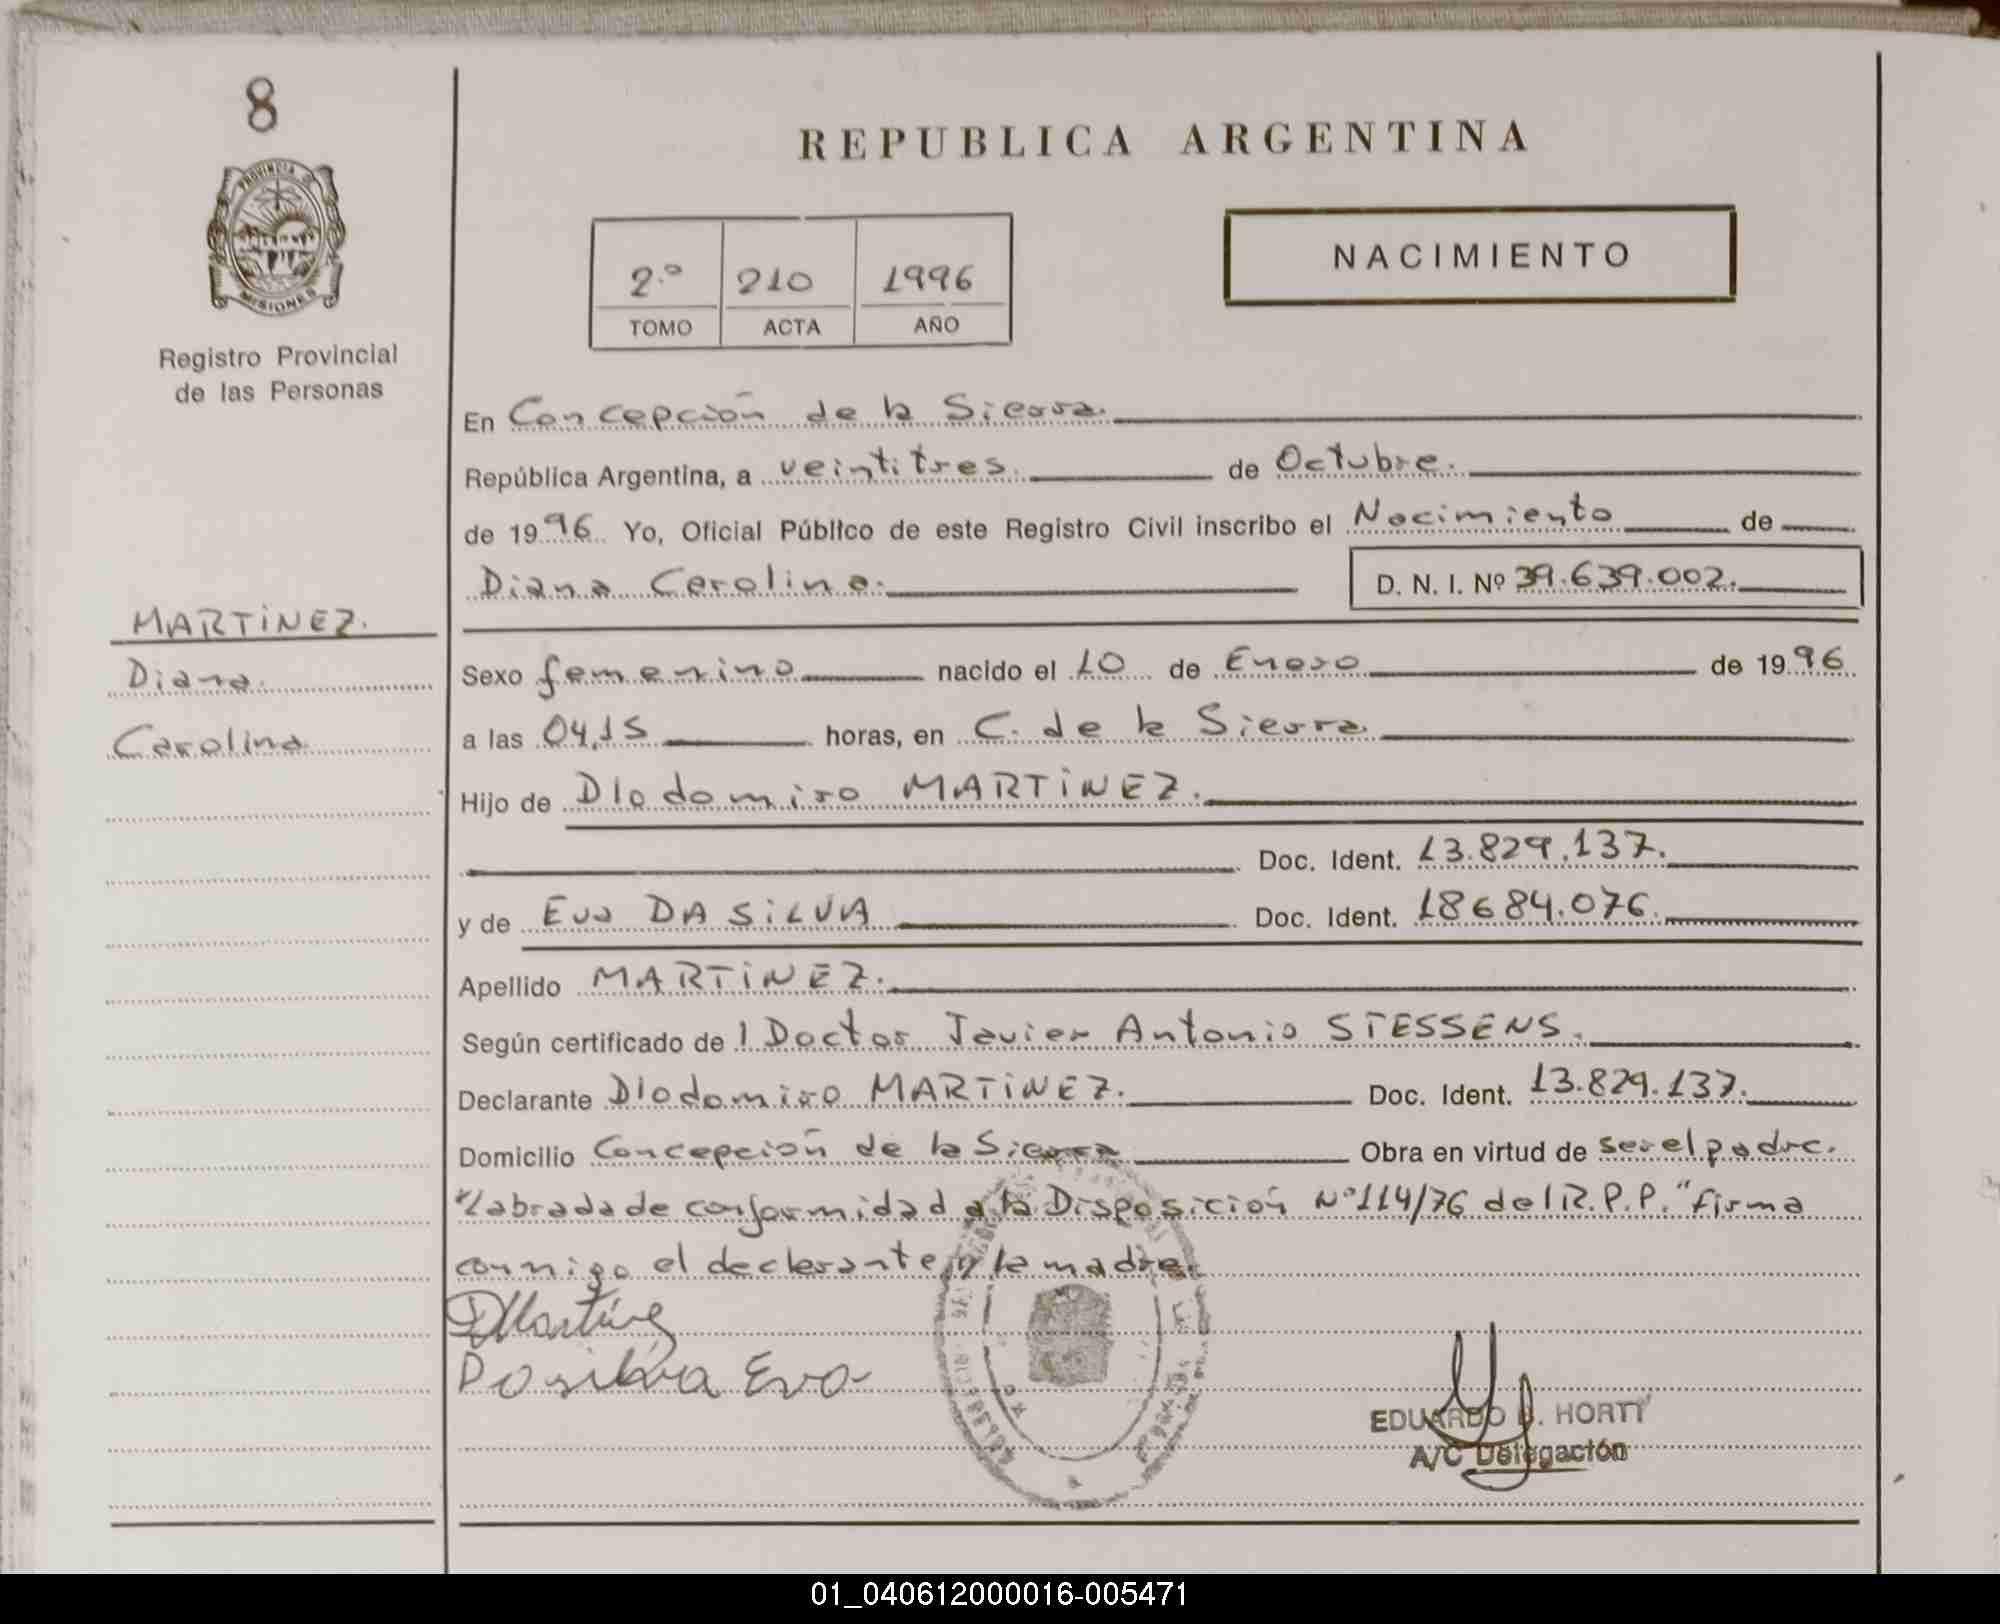 8
PROVINCIA DE
MISIONES
Registro Provincial
de las Personas
REPUBLICA ARGENTINA
2.º 210 1996
TOMO ACTA AÑO
NACIMIENTO
En Concepción de la Sierra.
República Argentina, a veintitres. de Octubre.
de 1996. Yo, Oficial Público de este Registro Civil inscribo el Nacimiento de
Diana Carolina. D. N. I. Nº 39.639.002.
MARTiNEZ.
Diana
Carolina
Sexo femenino nacido el 10 de Enero de 1996
a las 04,15 horas, en C. de la Sierra.
Hijo de DIodomiro MARTiNEZ.
Doc. Ident. 13.829.137.
y de Eva DA SiLVA Doc. Ident. 18684.076.
Apellido MARTiNEZ.
Según certificado de l Doctor Javier Antonio STESSENS.
Declarante DIodomiro MARTiNEZ. Doc. Ident. 13.829.137.
Domicilio Concepción de la Sierra Obra en virtud de ser el padre.
"labrada de conformidad a la Disposición Nº 114/76 del R.P.P." firma
conmigo el declarante y la madre.
DMartinez
Dasilva Eva
EDUARDO HORTT
A/C Delegación
01_040612000016-005471